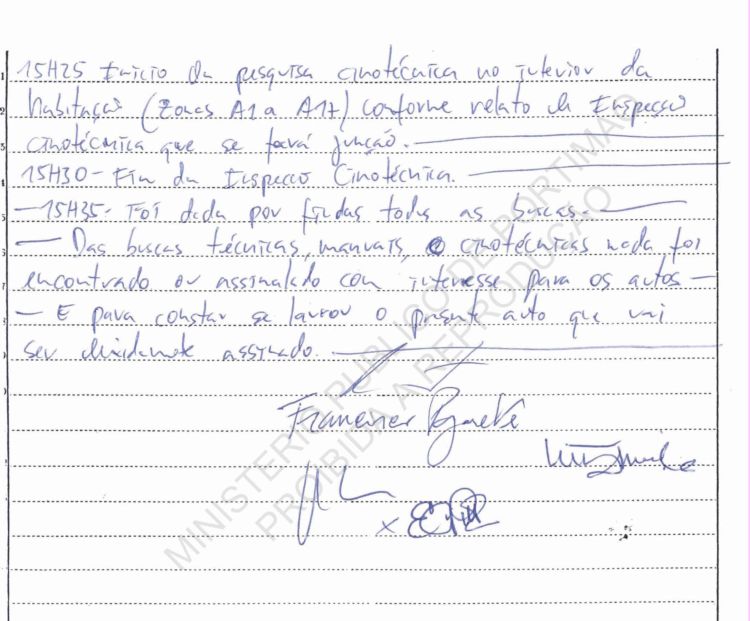 15H25 Início da pesquisa cinotécnica no interior da
habitação (Zonas A1 a A17) conforme relato de Inspeção
cinotécnica que se fará junção.
15H30 - Fim da Inspeção Cinotécnica.
- 15H35 - Foi dada por findas todas as buscas.
- Das buscas técnicas, manuais, e cinotécnicas nada foi
encontrado ou assinalado com interesse para os autos -
- E para constar se lavrou o presente auto que vai
ser devidamente assinado.
MINISTÉRIO PÚBLICO DE PORTIMÃO
PROIBIDA A REPRODUÇÃO